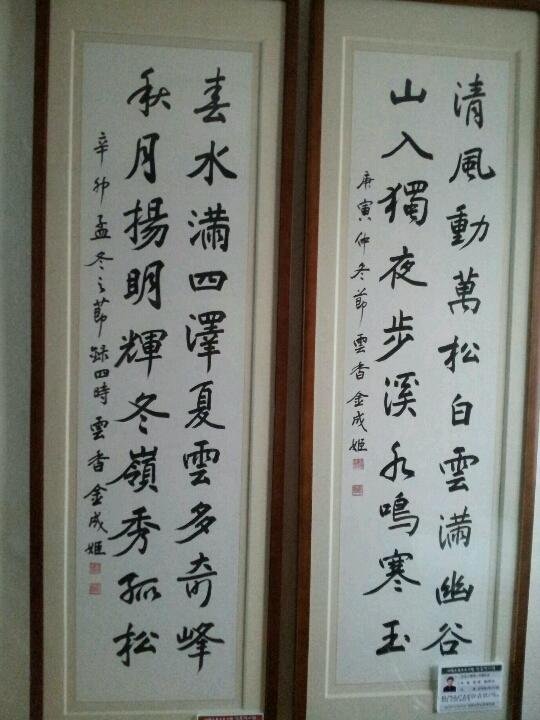 清風動萬松白雲滿幽谷
山人獨夜步溪水鳴寒玉
庚寅仲冬節雲香金成姬
春水滿四澤夏雲多奇峰
秋月揚明輝冬嶺秀孤松
辛卯孟冬之節錄四時雲香金成姬